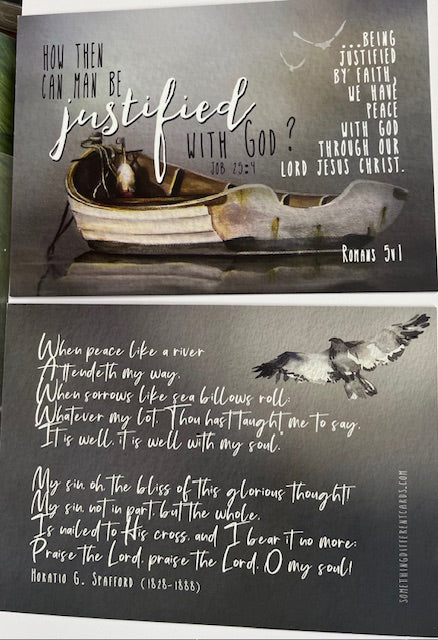 HOW THEN
CAN MAN BE
justified
WITH GOD?
JOB 25:4
...BEING
JUSTIFIED
BY FAITH,
WE HAVE
PEACE
WITH GOD
THROUGH OUR
LORD JESUS CHRIST.
ROMANS 5v1
When peace like a river
Attendeth my way,
When sorrows like sea billows roll;
Whatever my lot, Thou hast taught me to say,
It is well, it is well with my soul."
My sin, oh, the bliss of this glorious thought!
My sin, not in part, but the whole,
Is nailed to His cross, and I bear it no more:
Praise the Lord, praise the Lord, O my soul!
HORATIO G. SPAFFORD (1828-1888)
SOMETHINGDIFFERENTCARDS.COM